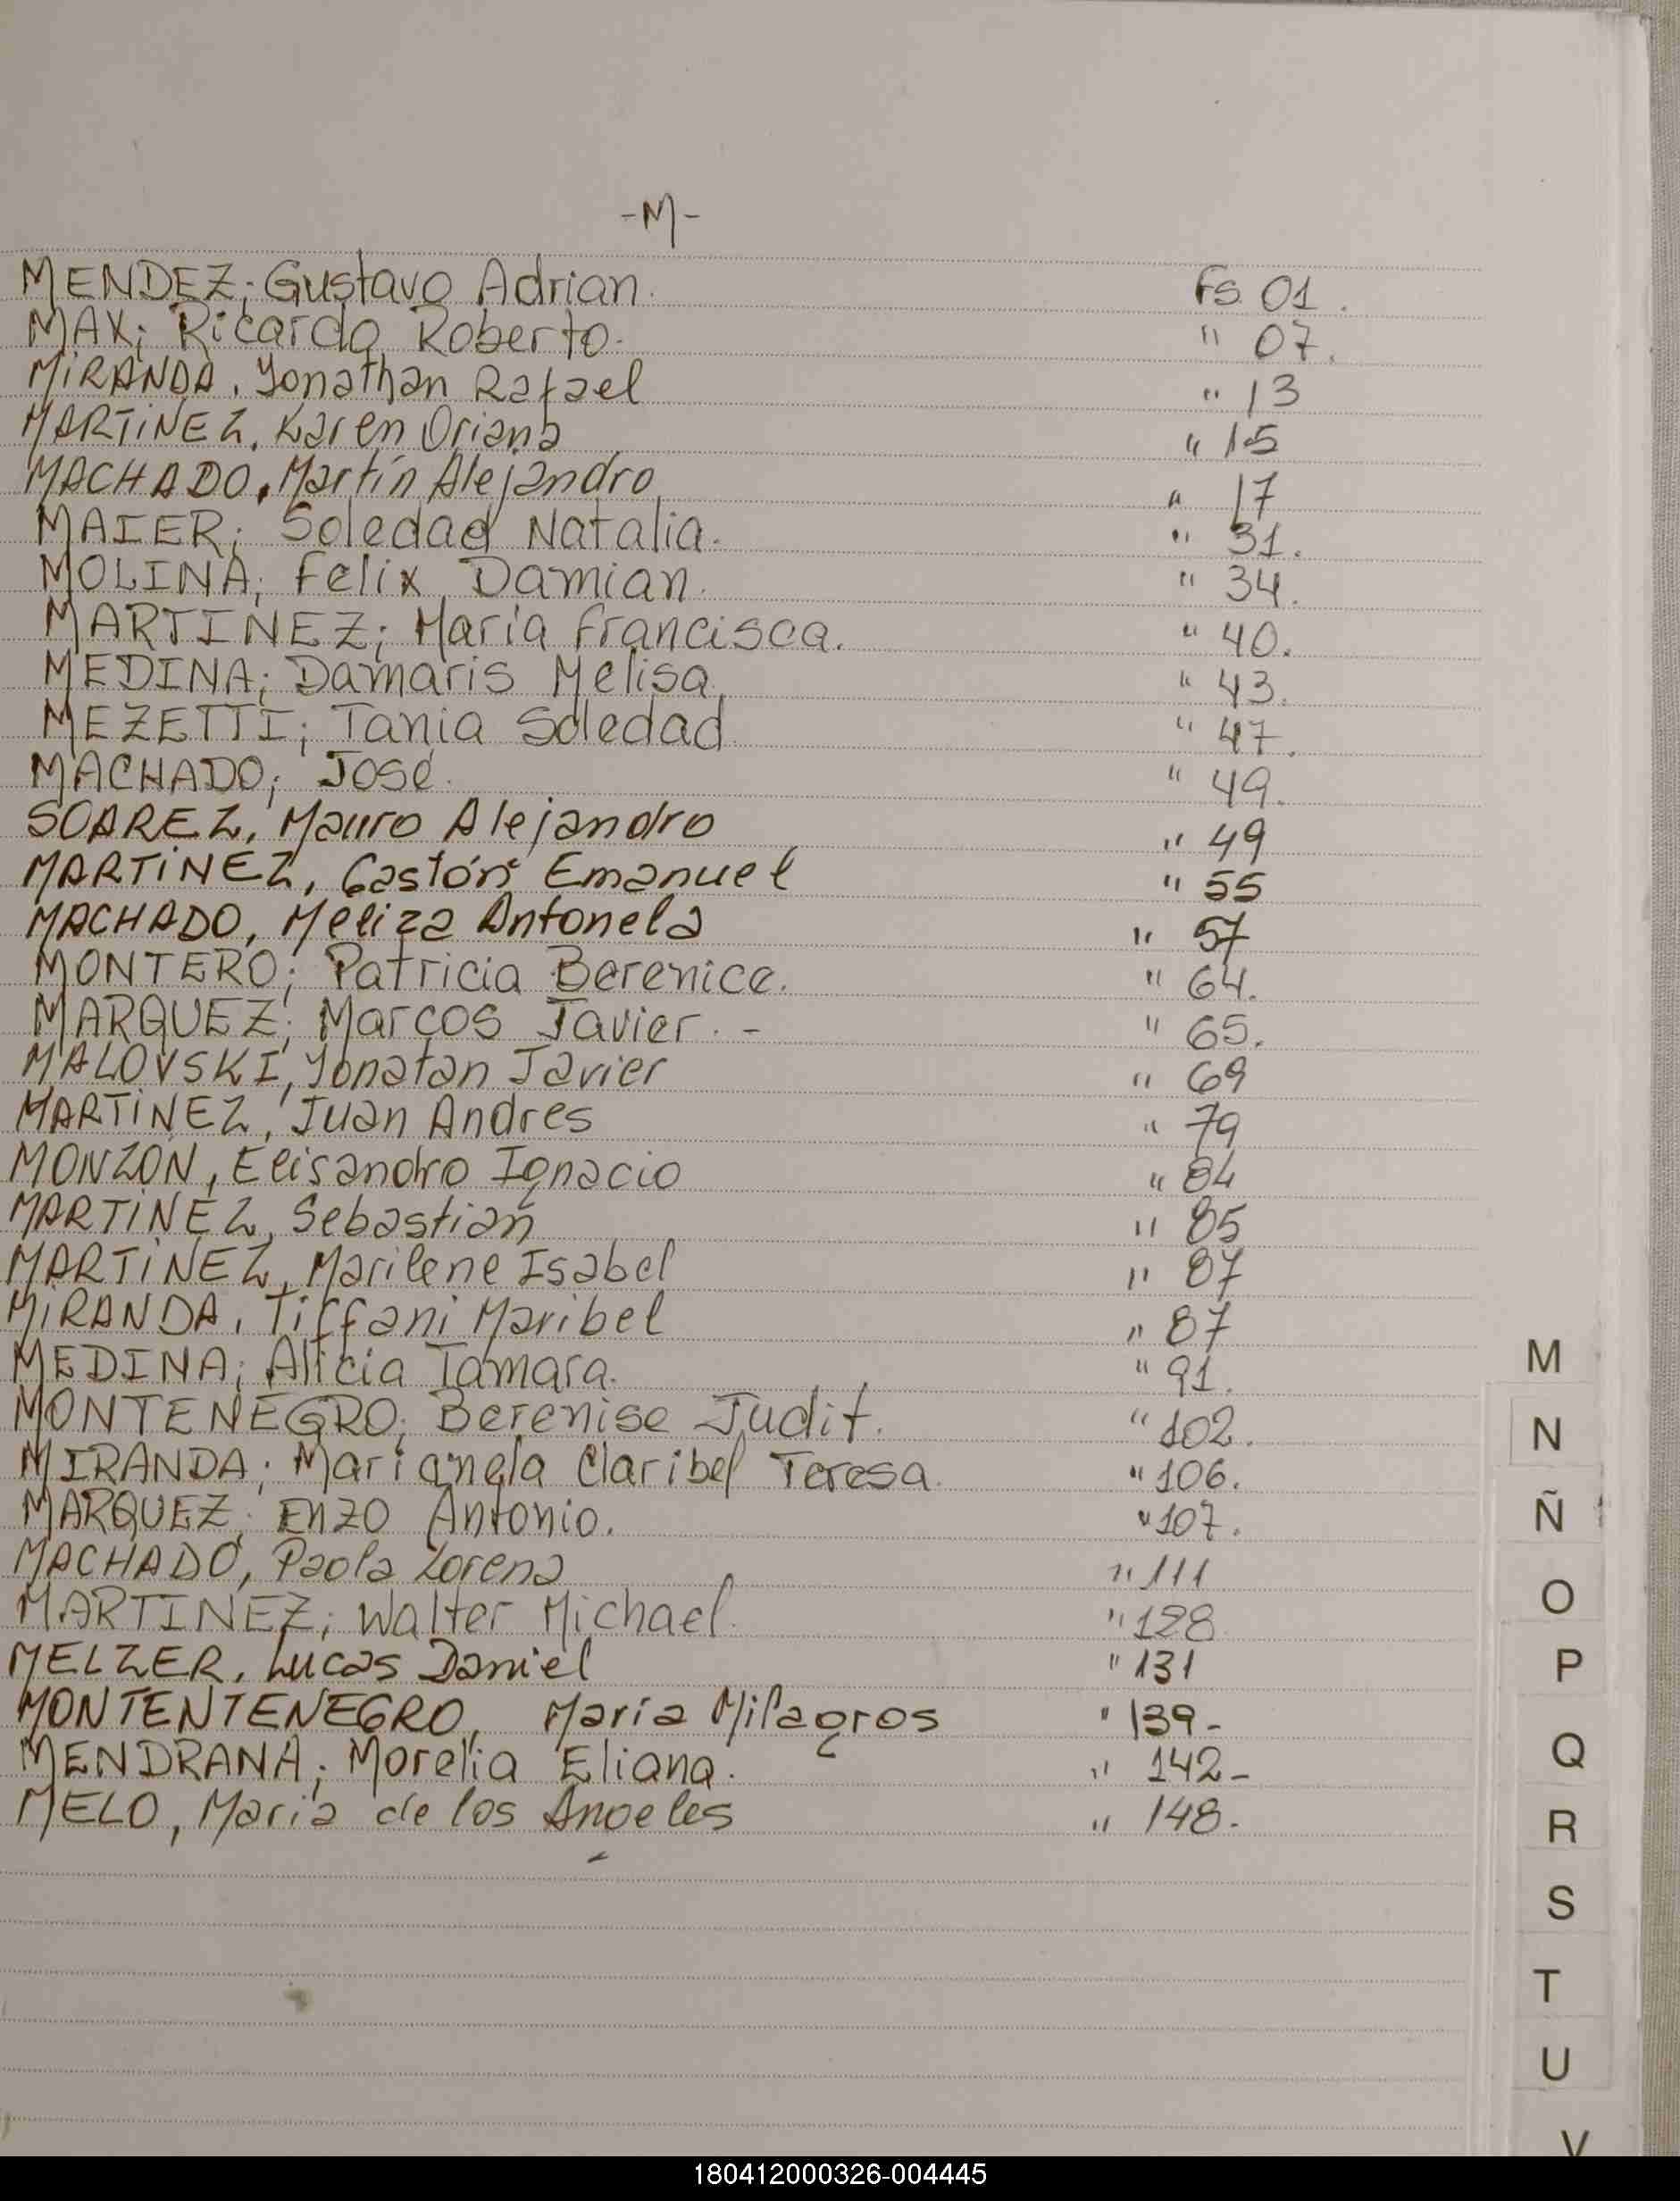 -M-
MENDEZ; Gustavo Adrian. Fs. 01.
MAX; Ricardo Roberto. " 07.
MiRANDA, Yonathan Rafael " 13
MARTiNEZ, Karen Oriana " 15
MACHADO, Martín Alejandro " 17
MAIER; Soledad Natalia. " 31.
MOLINA; Felix Damian. " 34.
MARTINEZ; María Francisca. " 40.
MEDINA; Damaris Melisa. " 43.
MEZETTI; Tania Soledad " 47.
MACHADO; José. " 49.
SOAREZ, Mauro Alejandro " 49
MARTiNEZ, Gastón Emanuel " 55
MACHADO, Meliza Antonela " 57
MONTERO; Patricia Berenice. " 64.
MARQUEZ; Marcos Javier. - " 65.
MALOVSKI, Yonatan Javier " 69
MARTiNEZ, Juan Andres " 79
MONZON, Elisandro Ignacio " 84
MARTiNEZ, Sebastian " 85
MARTiNEZ, Marilene Isabel " 87
MiRANDA, Tiffani Maribel " 87
MEDINA; Alicia Tamara. " 91.
MONTENEGRO; Berenise Judit. " 102.
MIRANDA; Marianela Claribel Teresa. " 106.
MARQUEZ; Enzo Antonio. " 107.
MACHADO, Paola Lorena " 111
MARTINEZ; Walter Michael. " 128
MELZER, Lucas Daniel " 131
MONTENTENEGRO, María Milagros " 139-
MENDRANA; Morelia Eliana. " 142-
MELO, María de los Angeles " 148.
M
N
Ñ
O
P
Q
R
S
T
U
V
180412000326-004445